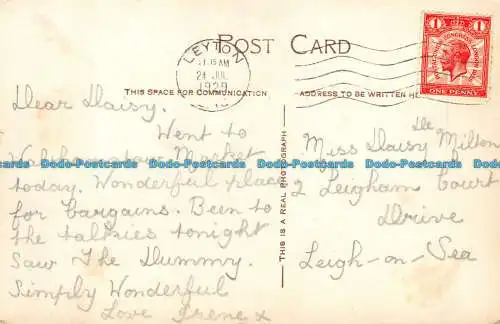 POST CARD
LEYTON
11.15 AM
24 JUL
1929
1 1
POSTAL UNION CONGRESS LONDON 1929
ONE PENNY
THIS SPACE FOR COMMUNICATION
ADDRESS TO BE WRITTEN HE
THIS IS A REAL PHOTOGRAPH
Dear Daisy.
Went to
Market
today. Wonderful place
for bargains. Been to
the talkies tonight
Saw The Dummy.
Simply Wonderful
Love Irene x
Miss Daisy De Milton
2 Leigham Court
Drive
Leigh-on-Sea
Dodo-Postcards Dodo-Postcards Dodo-Postcards Dodo-Postcards Dodo-Postcards Dodo-Postcards